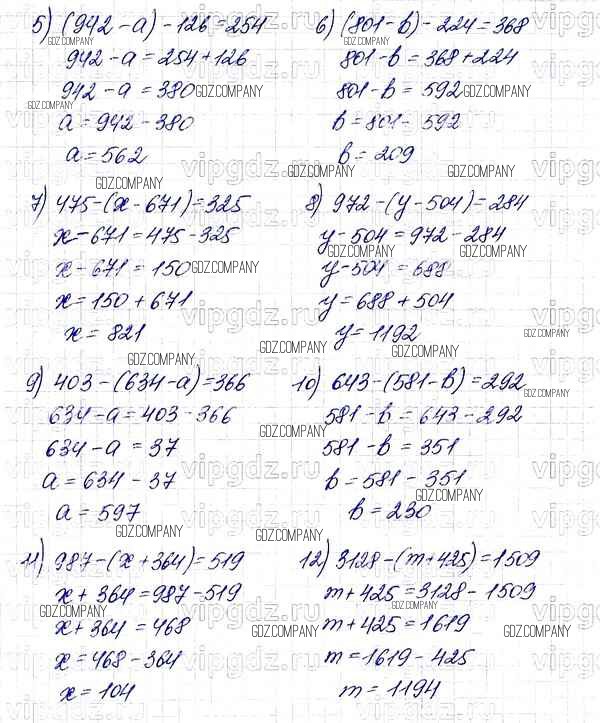 5) (942-a)-126=254
942-a=254+126
942-a=380
a=942-380
a=562
6) (801-b)-224=368
801-b=368+224
801-b=592
b=801-592
b=209
7) 475-(x-671)=325
x-671=475-325
x-671=150
x=150+671
x=821
8) 972-(y-504)=284
y-504=972-284
y-504=688
y=688+504
y=1192
9) 403-(634-a)=366
634-a=403-366
634-a=37
a=634-37
a=597
10) 643-(581-b)=292
581-b=643-292
581-b=351
b=581-351
b=230
11) 987-(x+364)=519
x+364=987-519
x+364=468
x=468-364
x=104
12) 3128-(m+425)=1509
m+425=3128-1509
m+425=1619
m=1619-425
m=1194
GDZ.COMPANY
vipgdz.ru